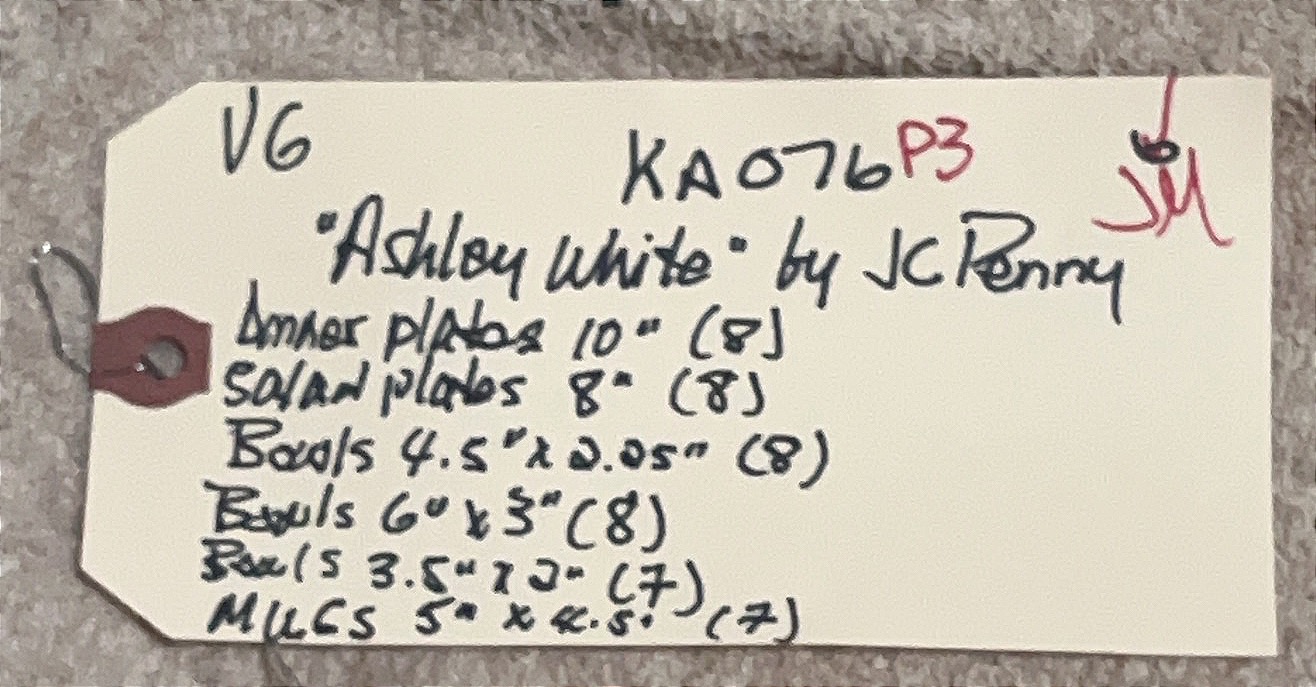 VG
KA076 P3
JM
"Ashley White" by JC Penny
Dinner plates 10" (8)
Salad plates 8" (8)
Bowls 4.5" x 2.25" (8)
Bowls 6" x 3" (8)
Bowls 3.5" x 2" (7)
MUGS 5" x 4.5" (7)